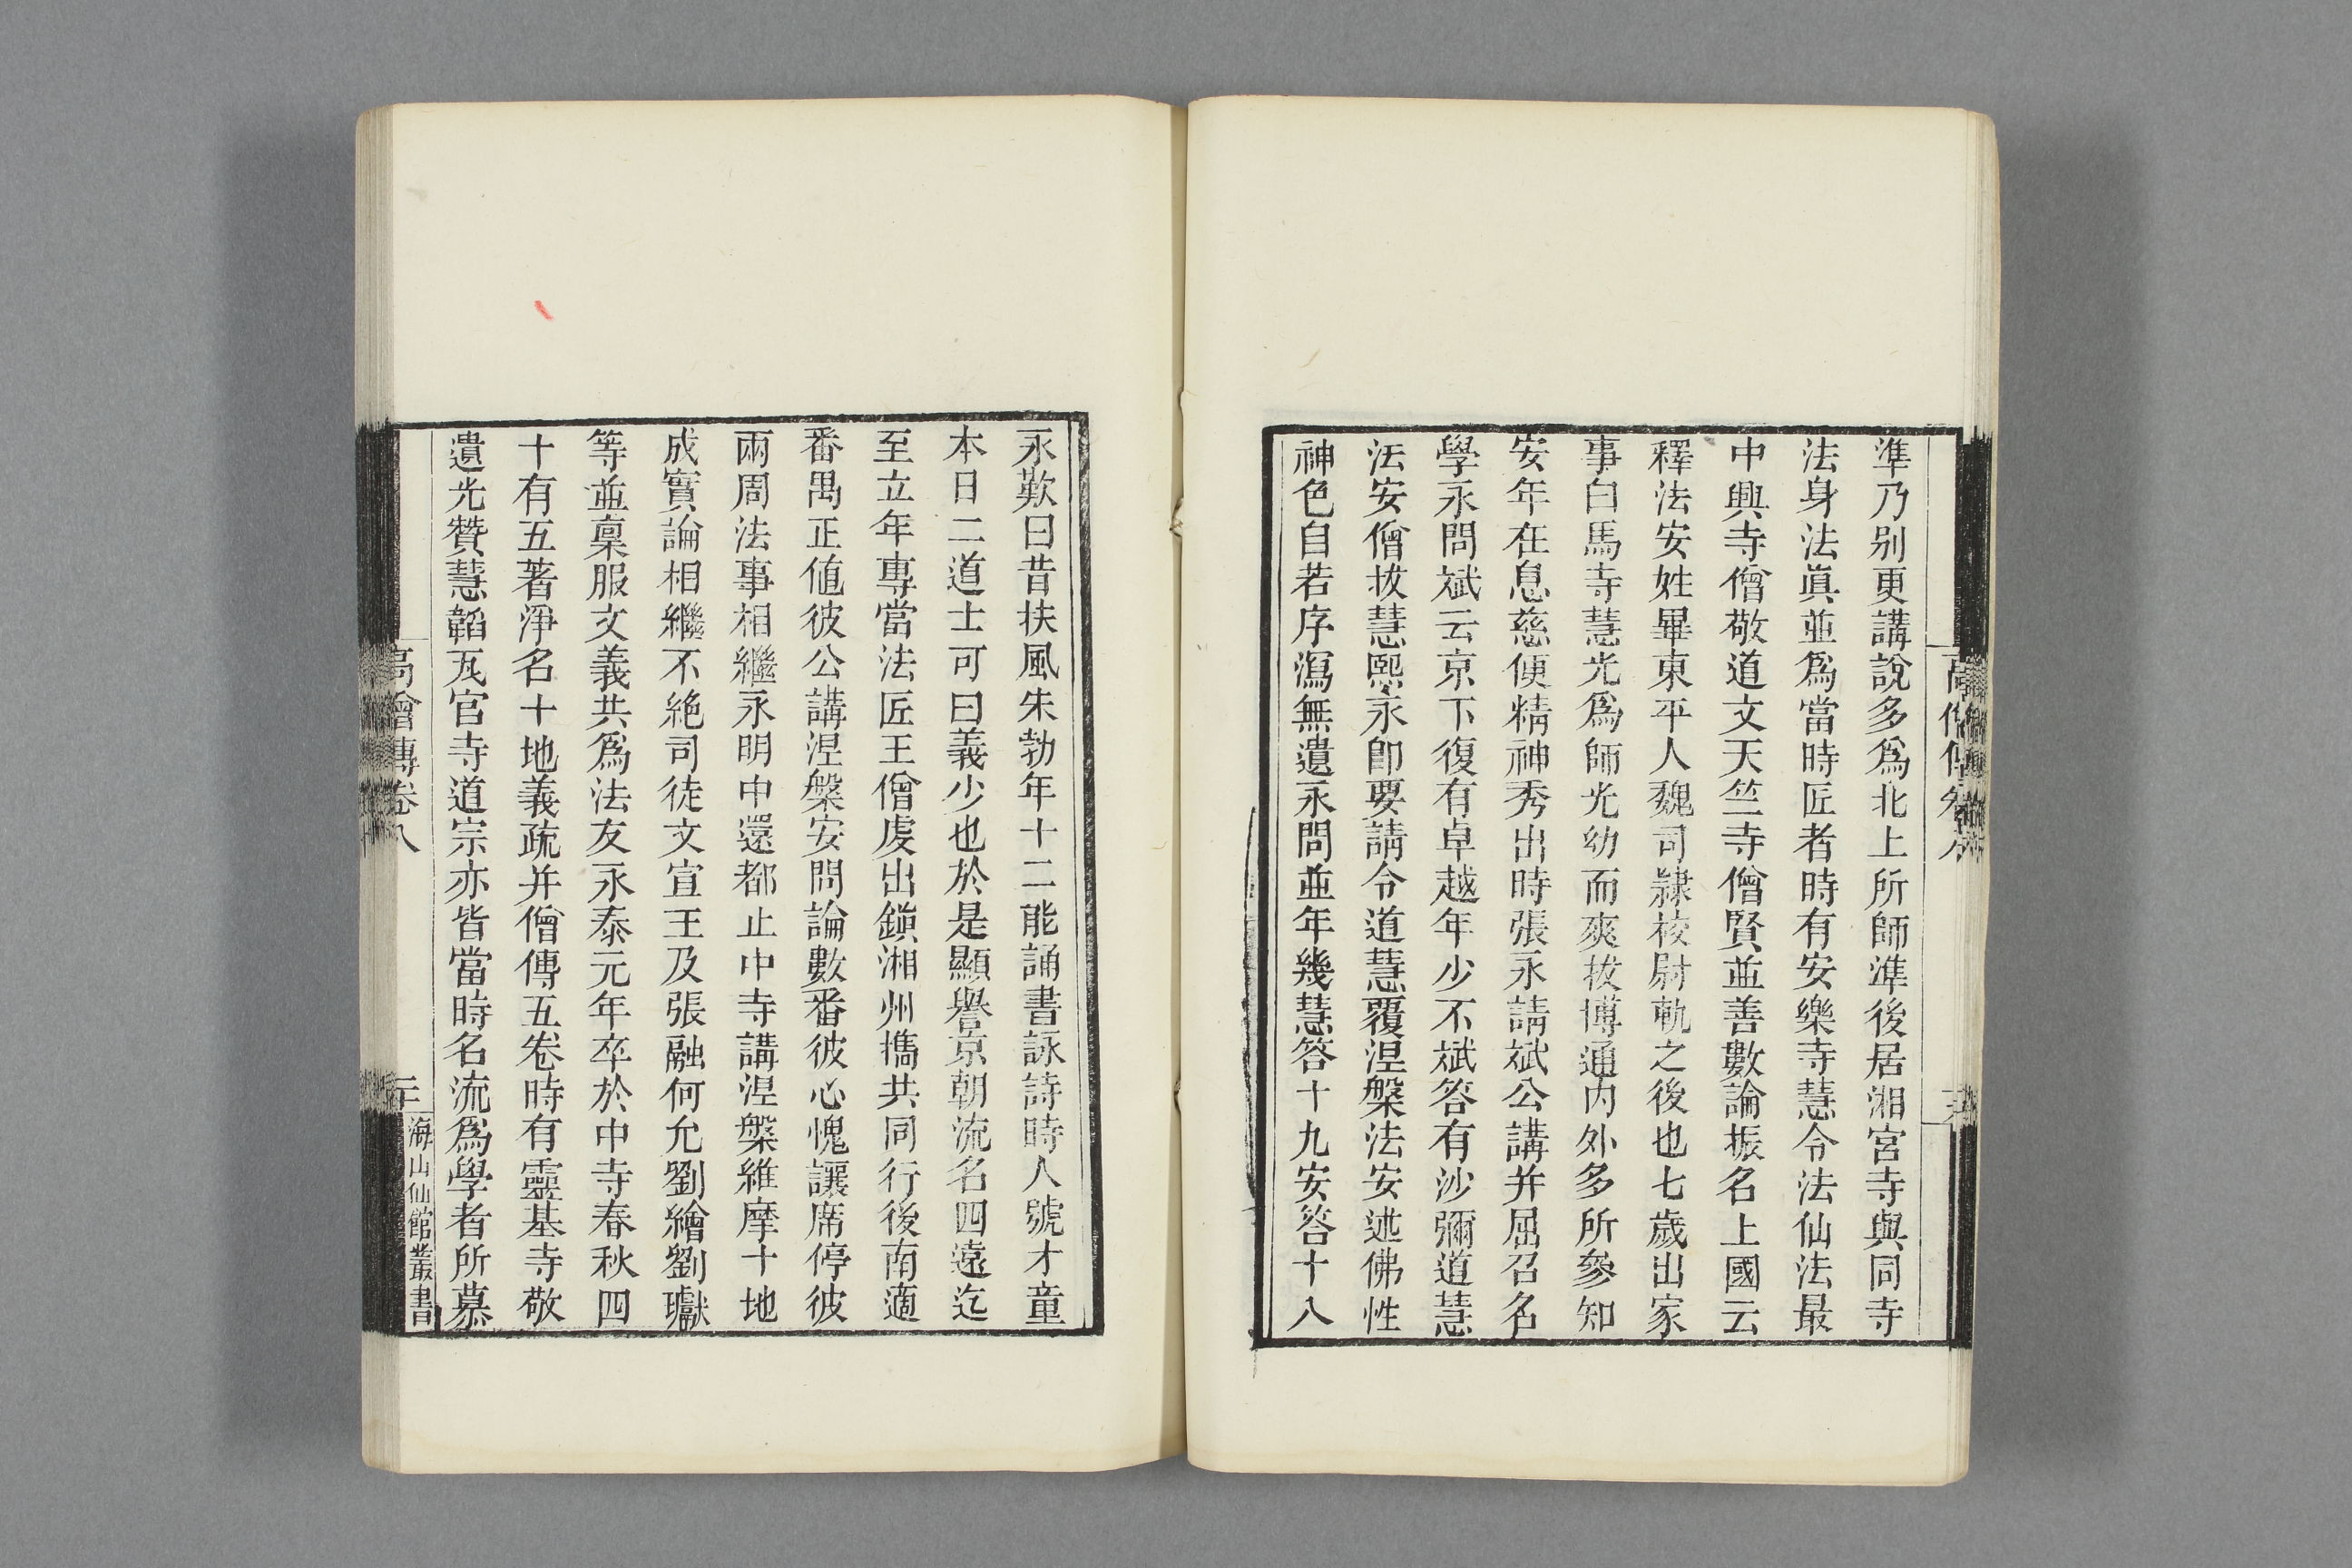 準乃别更講說多爲北上所師準後居湘宮寺與同寺
法身法眞並爲當時匠者時有安樂寺慧令法仙法最
中興寺僧敬道文天竺寺僧賢並善數論振名上國云
釋法安姓畢東平人魏司隸校尉軌之後也七歲出家
事白馬寺慧光爲師光幼而爽拔博通内外多所參知
安年在息慈便精神秀出時張永請斌公講并屈召名
學永問斌云京下復有卓越年少不斌答有沙彌道慧
法安僧拔慧熙永卽要請令道慧覆涅槃法安述佛性
神色自若序瀉無遺永問並年幾慧答十九安答十八
永歎曰昔扶風朱勃年十二能誦書詠詩時人號才童
本日二道士可曰義少也於是顯譽京朝流名四遠迄
至立年專當法匠王僧虔出鎮湘州攜共同行後南適
番禺正値彼公講涅槃安問論數番彼心愧讓席停彼
兩周法事相繼永明中還都止中寺講涅槃維摩十地
成實論相繼不絶司徒文宣王及張融何允劉繪劉瓛
等並稟服文義共爲法友永泰元年卒於中寺春秋四
十有五著淨名十地義疏并僧傳五卷時有靈基寺敬
遺光贊慧韜瓦官寺道宗亦皆當時名流爲學者所慕
高僧傳卷八
海山仙館叢書